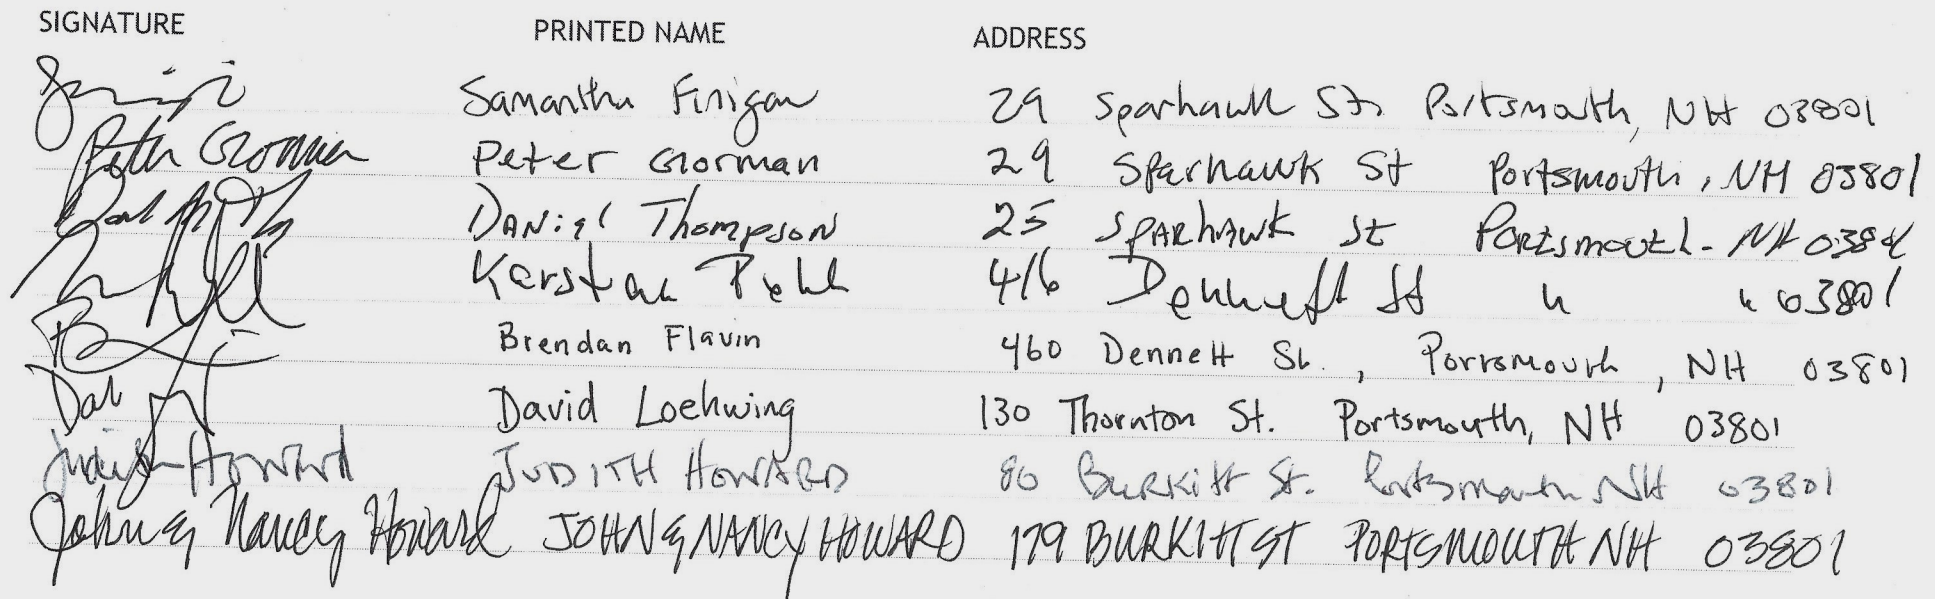 SIGNATURE PRINTED NAME ADDRESS
Samantha Finigan 29 Sparhawk St. Portsmouth, NH 03801
Peter Gorman Peter Gorman 29 Sparhawk St Portsmouth, NH 03801
DANiel Thompson 25 SPARHAWK St Portsmouth - NH 03801
Kerstan 416 Dennett St " " 03801
Brendan Flavin 460 Dennett St., Portsmouth, NH 03801
David Loehwing 130 Thornton St. Portsmouth, NH 03801
Judith Howard JUDITH HOWARD 80 Burkitt St. Portsmouth NH 03801
John & Nancy Howard JOHN & NANCY HOWARD 179 BURKITT ST PORTSMOUTH NH 03801